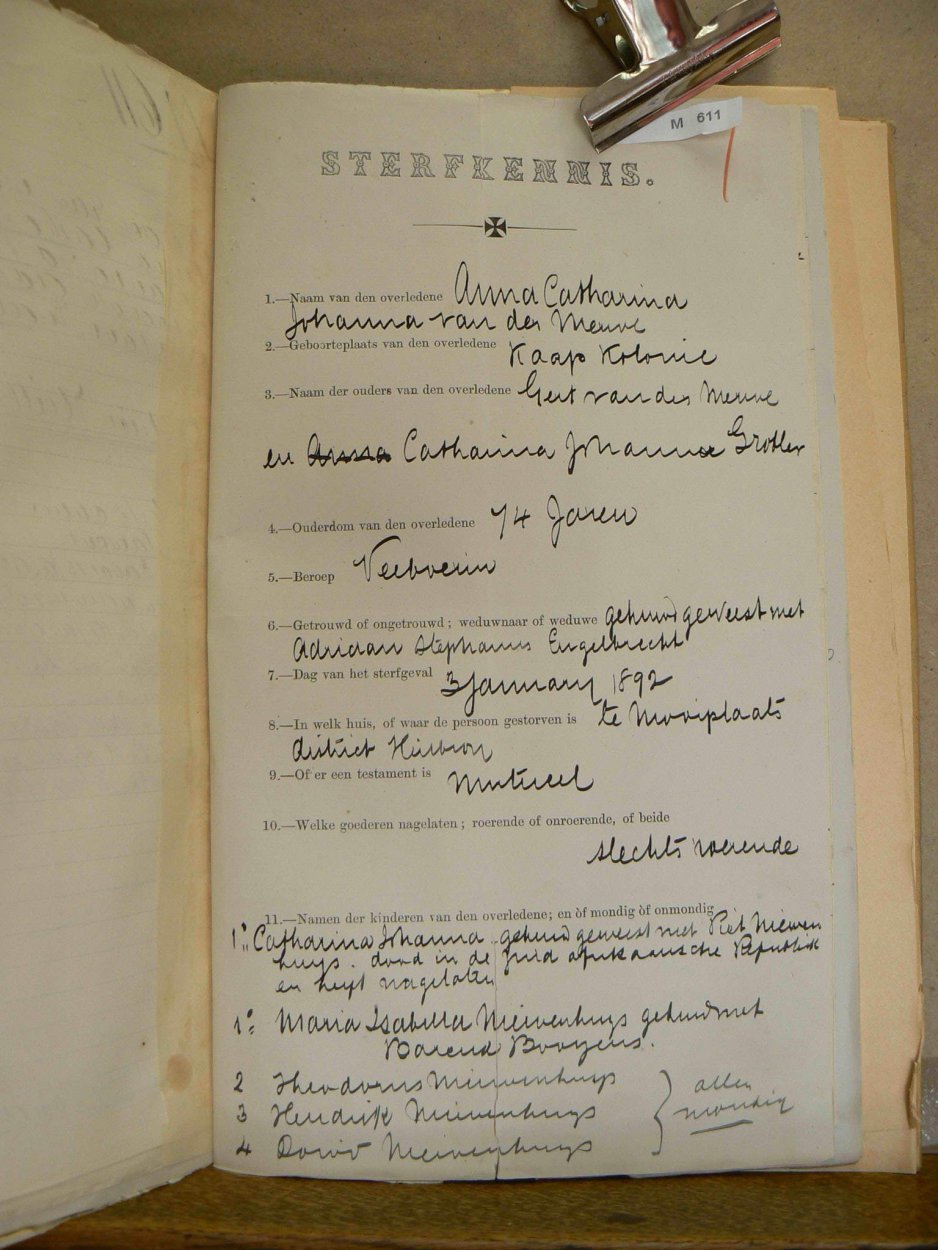 M 611
STERFKENNIS.
1.—Naam van den overledene Anna Catharina
Johanna van der Merwe
2.—Geboorteplaats van den overledene Kaap Kolonie
3.—Naam der ouders van den overledene Gert van der Merwe
en Anna Catharina Johanna Grobler
4.—Ouderdom van den overledene 74 Jaren
5.—Beroep Veeboerin
6.—Getrouwd of ongetrouwd; weduwnaar of weduwe gehuwd geweest met
Adriaan Stephanus Engelbrecht
7.—Dag van het sterfgeval 3 January 1892
8.—In welk huis, of waar de persoon gestorven is te Mooiplaats
district Heilbron
9.—Of er een testament is Mutueel
10.—Welke goederen nagelaten; roerende of onroerende, of beide
slechts roerende
11.—Namen der kinderen van den overledene; en òf mondig òf onmondig
1º Catharina Johanna gehuwd geweest met Piet Nieuwen
huys. dood in de Zuid Afrikaansche Republiek
en heeft nagelaten
1º Maria Isabella Nieuwenhuys gehuwd met
Barend Booyens.
2 Theodorus Nieuwenhuys
3 Hendrik Nieuwenhuys
allen
mondig
4 Dawid Nieuwenhuys